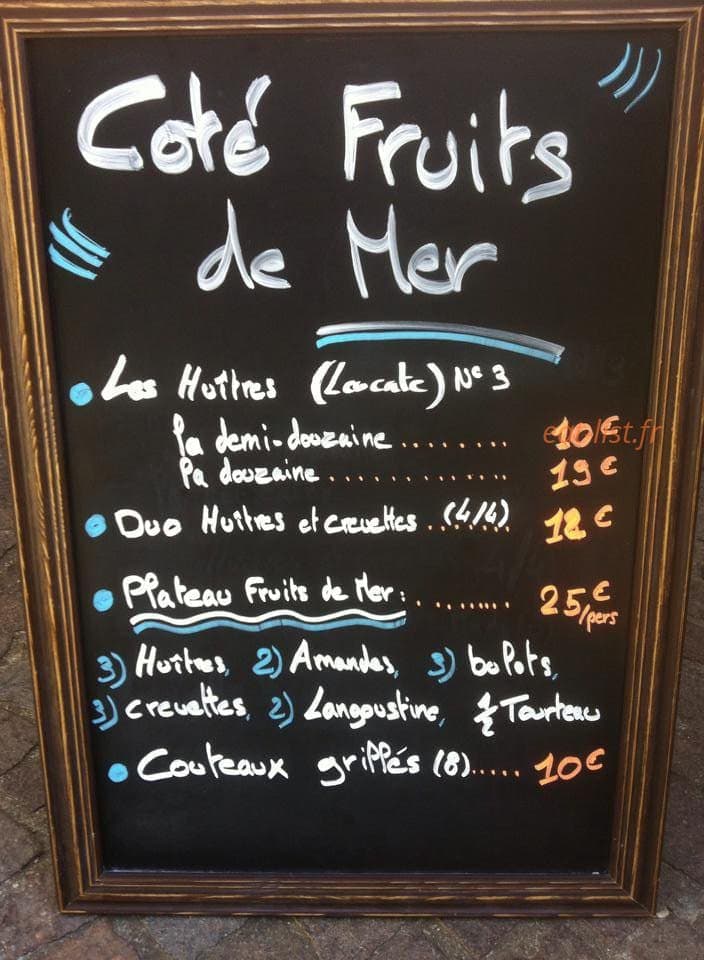 Coté Fruits
de Mer
Les Huîtres (Leucate) N° 3
la demi-douzaine ........ 10€
la douzaine ............. 19€
Duo Huîtres et crevettes .(4/4). 12€
Plateau Fruits de Mer: ........ 25€/pers
3) Huîtres, 2) Amandes, 3) bulots,
3) crevettes, 2) Langoustine, ½ Tourteau
Couteaux grillés (8)..... 10€